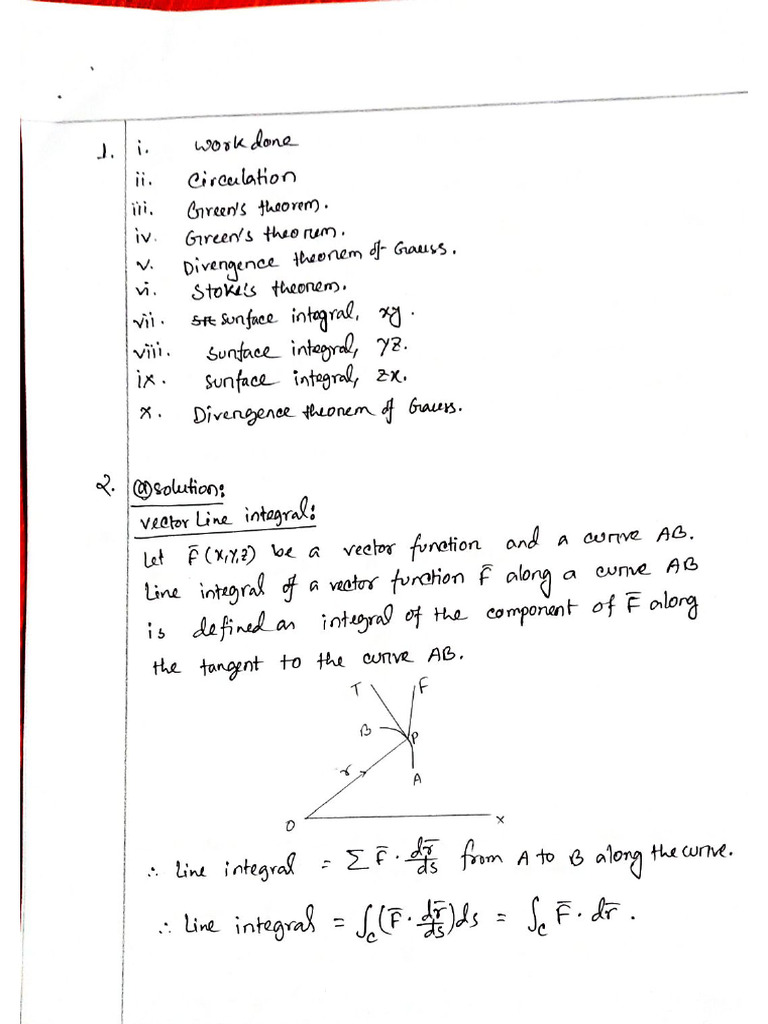 1. i. work done
ii. Circulation
iii. Green's theorem.
iv. Green's theorem.
v. Divergence theorem of Gauss.
vi. Stoke's theorem.
vii. surface integral, xy.
viii. surface integral, yz.
ix. surface integral, zx.
x. Divergence theorem of Gauss.
2. ⓐ solution:
vector Line integral:
Let F̄(x,y,z) be a vector function and a curve AB.
Line integral of a vector function F̄ along a curve AB
is defined as integral of the component of F̄ along
the tangent to the curve AB.
T F
B P
r
A
O x
∴ Line integral = Σ F̄ · dr̄/ds from A to B along the curve.
∴ Line integral = ∫c (F̄ · dr̄/ds) ds = ∫c F̄ · dr̄.